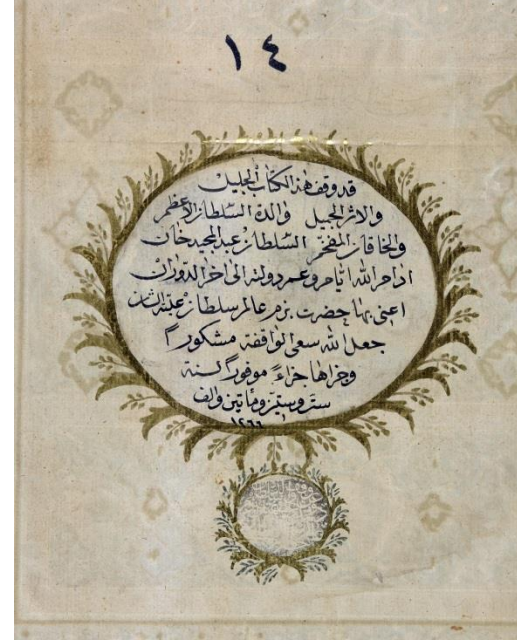 ١٤
قد وقف هذا الكتاب الجليل
والاثر الجميل والدة السلطان الاعظم
والخاقان المفخم السلطان عبد المجيد خان
ادام الله ايامه وعمر دولته الى اخر الدوران
اعنى بها حضرت بزم عالم سلطان علية الشان
جعل الله سعى الواقفة مشكورا
وجزاها جزاء موفورا لسنة
ست وستين ومأتين والف
١٢٦٦